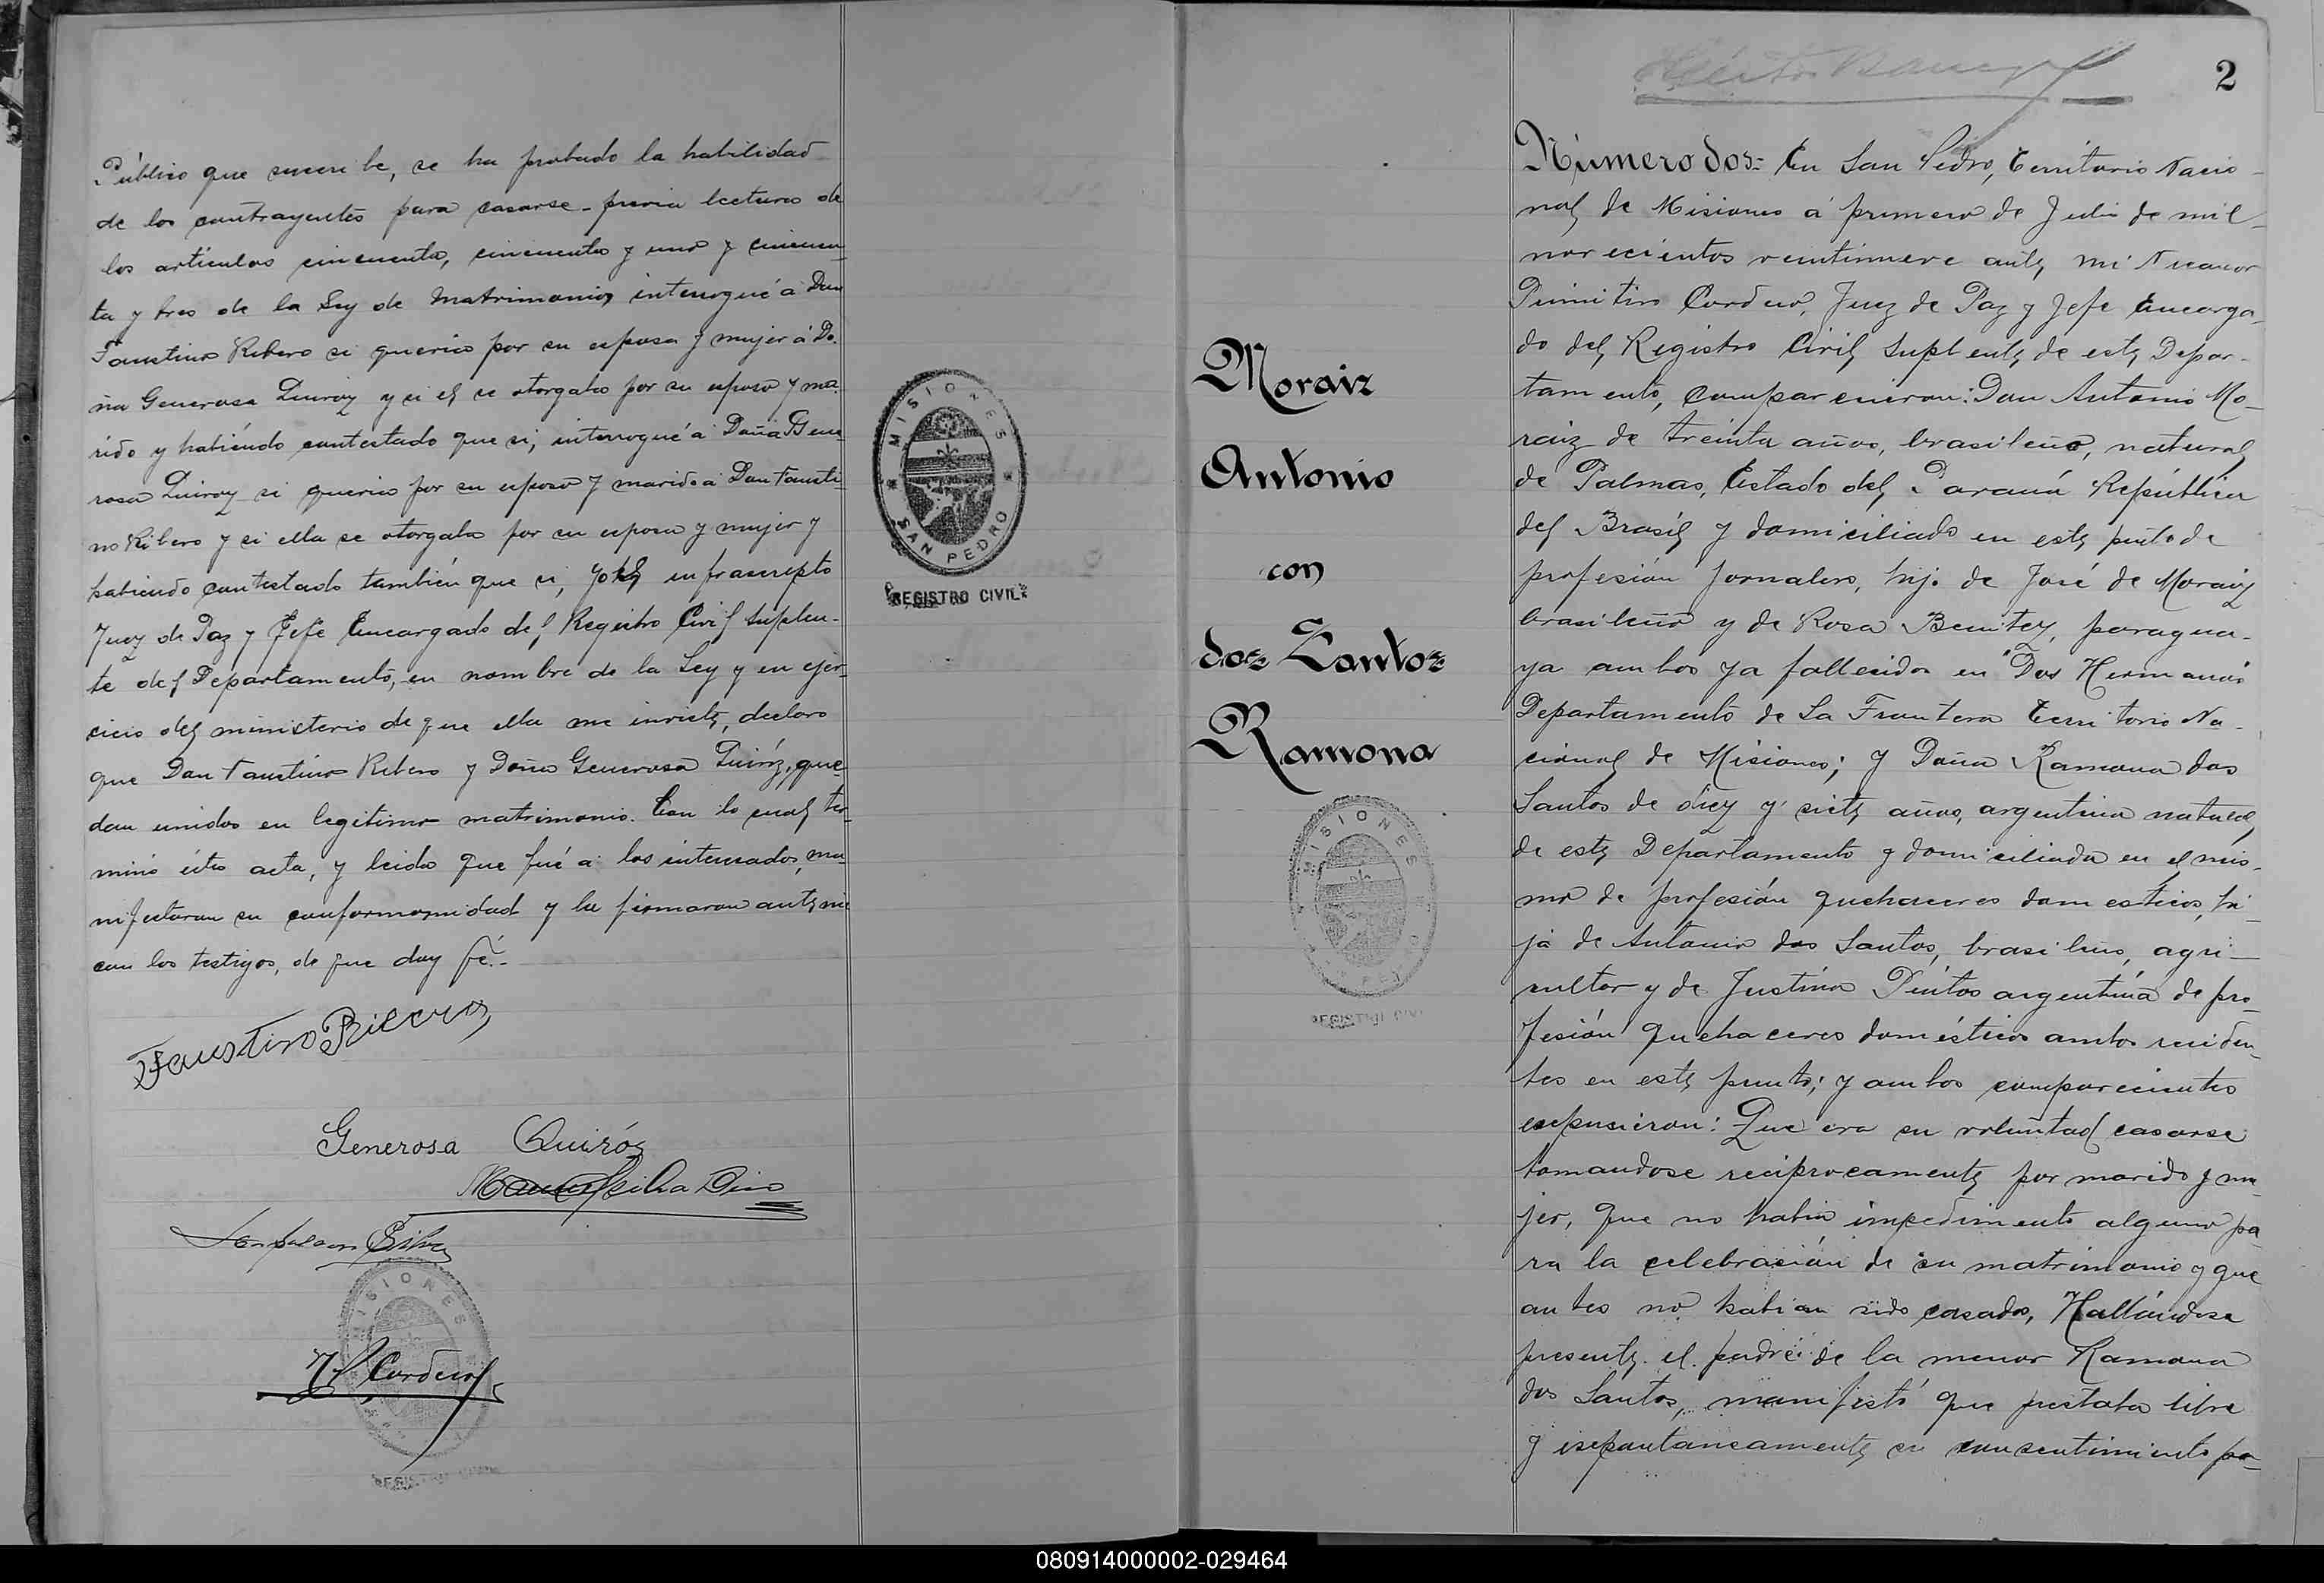 Público que suscribe, se ha probado la habilidad
de los contrayentes para casarse - previa lectura de
los artículos cincuenta, cincuenta y uno y cincuen-
ta y tres de la Ley de Matrimonio, interrogué á Don
Faustino Ribero si queria por su esposa y mujer á Do-
ña Generosa Quiroz y si él se otorgaba por su esposo y ma-
rido y habiéndo contestado que si, interrogué á Doña Gene-
rosa Quiroz si queria por su esposo y marido á Don Fausti-
no Ribero y si ella se otorgaba por su esposa y mujer y
habiendo contestado también que si, yo el infrascripto
Juez de Paz y Jefe Encargado del Registro Civil Suplen-
te del Departamento, en nombre de la Ley y en ejer-
cicio del ministerio de que ella me inviste, declaro
que Don Faustino Ribero y Doña Generosa Quiróz, que-
dan unidos en legítimo matrimonio. Con lo cual ter-
minó ésta acta, y leida que fué á los interesados, ma-
nifestaron su conformomidad y la firmaron ante mi
con los testigos, de que doy fé.-
Faustino Ribero
Generosa Quiróz
Silva
N P Cordero
MISIONES
SAN PEDRO
REGISTRO CIVIL
MISIONES
REGISTRO CIVIL
2
Moraiz
Antonio
con
dos Santos
Ramona
MISIONES
REGISTRO CIVIL
Número dos: En San Pedro, Territorio Nacio-
nal de Misiones á primero de Julio de mil
novecientos veintinueve ante mi Nicanor
Primitivo Cordero, Juez de Paz y Jefe Encarga-
do del Registro Civil Suplente de este Depar-
tamento, comparecieron: Don Antonio Mo-
raiz de treinta años, brasileño, natural
de Palmas, Estado del Paraná República
del Brasil y domiciliado en este punto de
profesión Jornalero, hijo de José de Moraiz
brasileño y de Rosa Benitez, paragua-
ya ambos ya fallecidos en "Dos Hermanas"
Departamento de La Frontera Territorio Na-
cional de Misiones; y Doña Ramona dos
Santos de diez y siete años, argentina natural
de este Departamento y domiciliada en el mis-
mo de profesión quehaceres domesticos, hi-
ja de Antonio dos Santos, brasileño, agri-
cultor y de Justina Pintos argentina de pro
fesión quehaceres domésticos ambos residen-
tes en este punto; y ambos comparecientes
expusieron: Que era su voluntad casarse
tomandose reciprocamente por marido y mu-
jer, que no había impedimento alguno pa-
ra la celebración de su matrimonio y que
antes no habian sido casados, Hallándose
presente el padre de la menor Ramona
dos Santos, manifestó que prestaba libre
y espontaneamente su consentimiento pa-
080914000002-029464